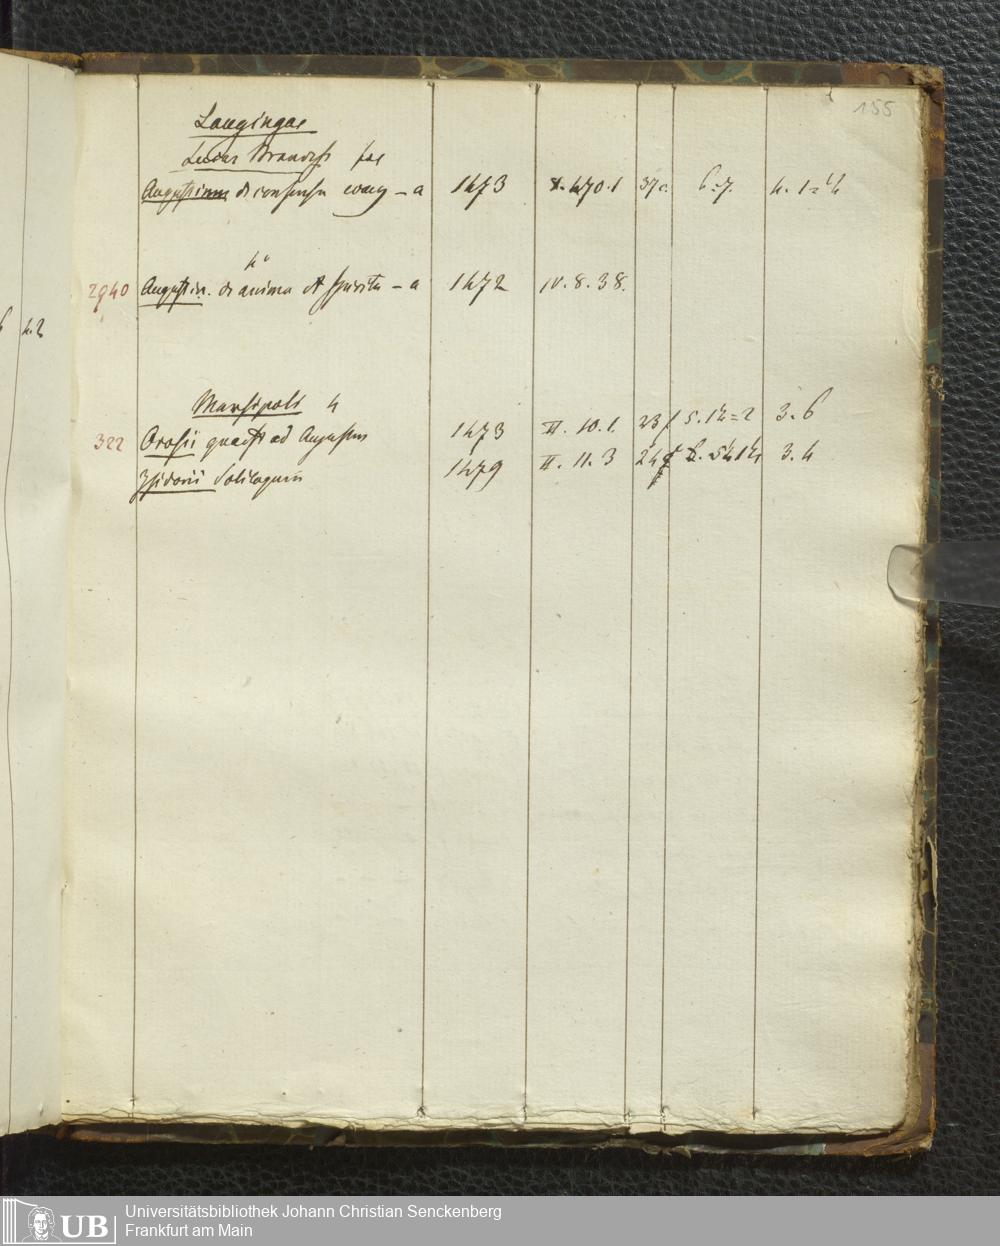 155
Laugingae
Lucas Brandis
Augustinus de consensu evang – a 1473 X. 470. 1 37 c. 6=7. 4. 1=
4°
2940 Augustin. de anima et spiritu – a 1472 IV. 8. 38.
4. 2
Marsipoli 4
322 Orosii quaest ad Augustin 1473 II. 10. 1. 23 f 5. 2 3. 6
Isidorii Soliloquia 1479 II. 11. 3 24 3. 4
UB Universitätsbibliothek Johann Christian Senckenberg
Frankfurt am Main